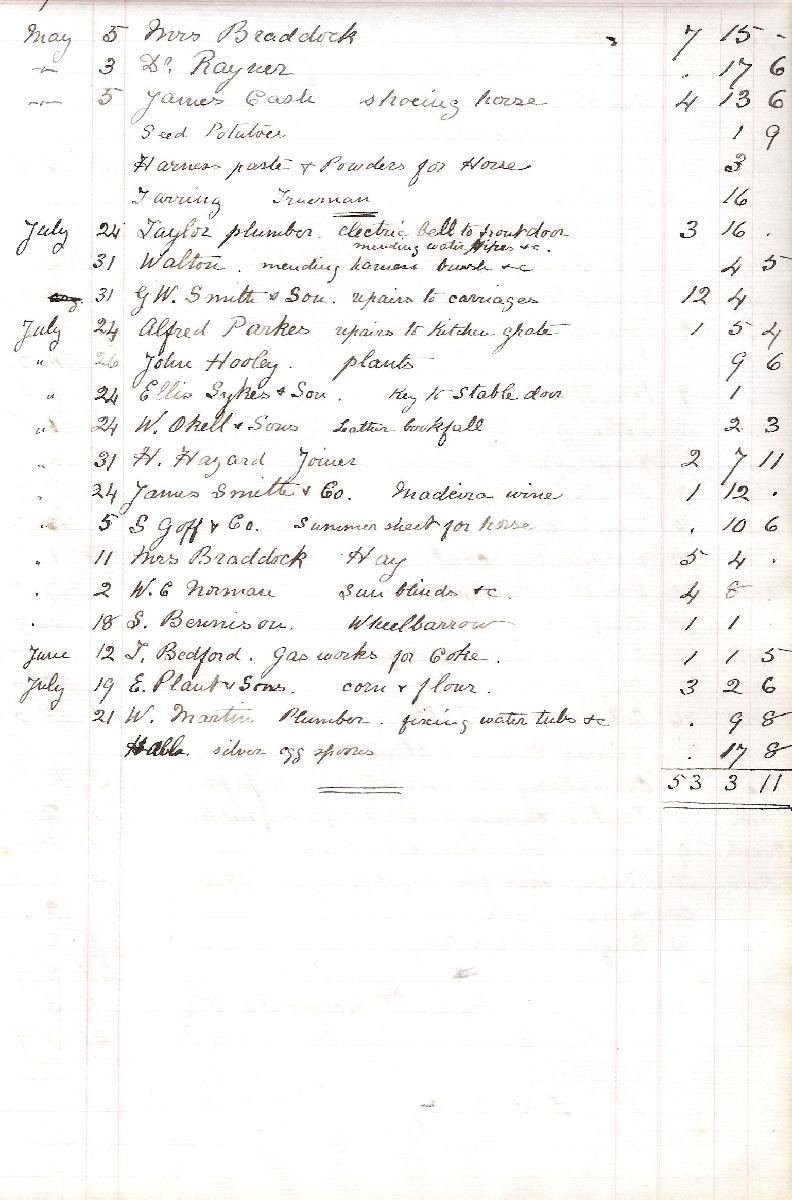 May 5 Mrs Braddock 7 15 -
" 3 Dr. Rayner . 17 6
" 5 James Cash shoeing horse 4 13 6
Seed Potatoes 1 9
Harness paste & Powders for Horse 3
Tarring Trueman 16
July 24 Taylor plumber. electric bell to frontdoor 3 16 .
mending water pipes &c.
31 Walton. mending harness brush &c 4 5
31 G W. Smith & Son. repairs to carriages 12 4
July 24 Alfred Parkes repairs to Kitchen grate 1 5 4
" 26 John Hooley. plants 9 6
" 24 Ellis Sykes & Son. Key to Stable door 1
" 24 W. Okell & Sons Leather bookfall 2 3
" 31 H. Hazard Joiner 2 7 11
" 24 James Smith & Co. Madeira wine 1 12 .
" 5 S Goff & Co. Summer sheet for horse . 10 6
" 11 Mrs Braddock Hay 5 4 .
" 2 W. C Norman Sun blinds &c. 4 8
" 18 S. Bennison. Wheelbarrow 1 1
June 12 T. Bedford. Gas works for Coke. 1 1 5
July 19 E. Plant & Sons. corn & flour. 3 2 6
21 W. Martin Plumber. fixing water tubs &c . 9 8
Halls. silver egg spoons . 17 8
53 3 11